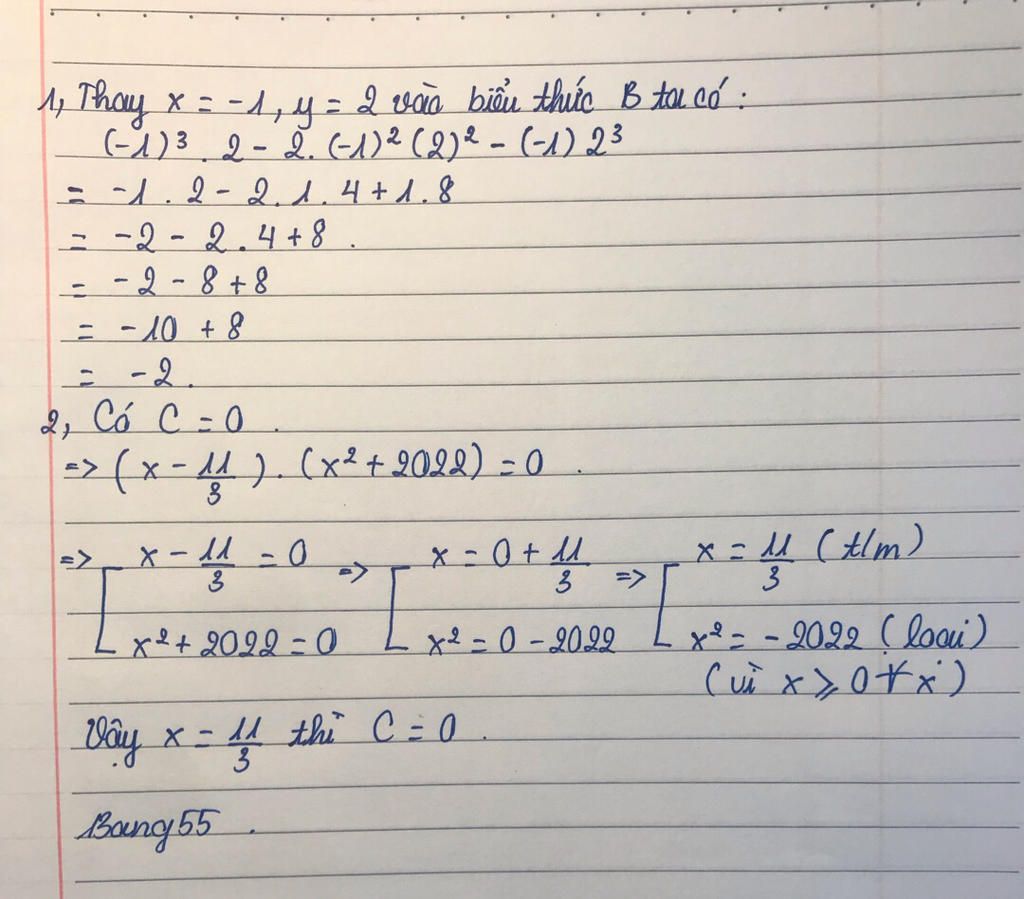 1, Thay x = -1, y = 2 vào biểu thức B ta có:
(-1)³ . 2 - 2. (-1)² (2)² - (-1) 2³
= -1 . 2 - 2. 1. 4 + 1. 8
= -2 - 2 . 4 + 8 .
= -2 - 8 + 8
= -10 + 8
= -2 .
2, Có C = 0 .
=> (x - 11/3) . (x² + 2022) = 0 .
=> [ x - 11/3 = 0 => [ x = 0 + 11/3 => [ x = 11/3 (t/m)
x² + 2022 = 0 x² = 0 - 2022 x² = -2022 (loại)
(vì x ⩾ 0 ∀ x)
Vậy x = 11/3 thì C = 0 .
Bang55 .